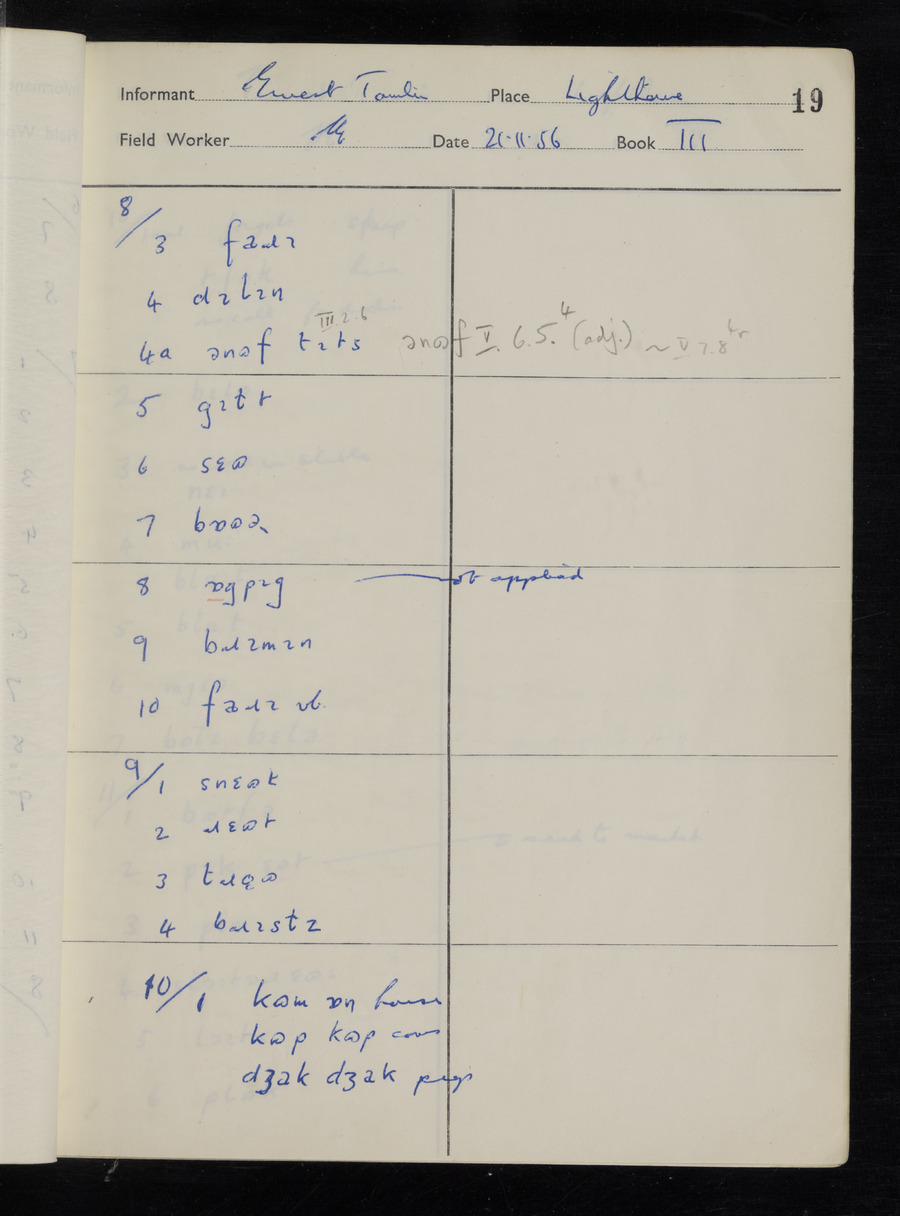 Informant Ernest Tomlin Place Lighthorne 19
Field Worker Date 21·11·56 Book III
8/3 faɹɪ
4 dɪlɪn
III 2.6
4a ənɷf tɪts ənɷf V. 6.5.4 (adj.) ~ V 7.8
5 gɪlt
6 sɛɷ
7 bɒɷə
8 ɒgpɪg not applied
9 bɹɪmɪn
10 faɹɪ vb.
9/1 snɛɷt
2 ɹɛɷt
3 tɹɑɷ
4 bɹɪstz
10/1 kɷm ɒn horse
kɷp kɷp cows
dʒak dʒak pigs